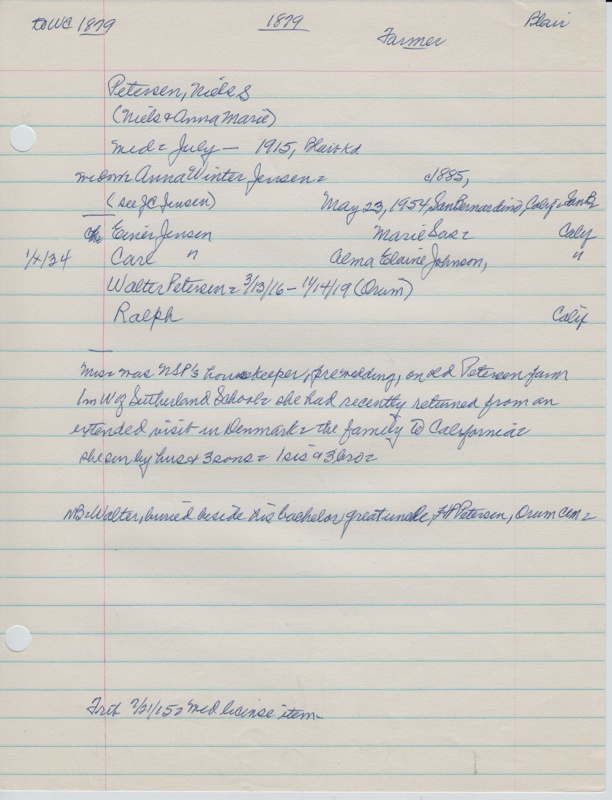 to WC 1879 1879 Farmer Blair
Petersen, Niels S
(Niels & Anna Marie)
med = July — 1915, Blair
Mrs Anna Winter Jensen = c1885,
(see JC Jensen) May 23, 1954, San Bernardino, Calif =
Ch = Einer Jensen Marie Sas = Calif
1/x/34 Carl " Alma Elaine Johnson, "
Walter Petersen = 3/13/16 – 11/14/19 (Orum)
Ralph Calif
Mis = was NSP's housekeeper, prewedding, on old Petersen farm
1m W of Sutherland School = she had recently returned from an
extended visit in Denmark = the family to California =
she sur by hus & 3 sons = 1 sis & 3 bro =
NB = Walter, buried beside his bachelor great uncle, HP Petersen, Orum Cem =
7/21/15 = med license item